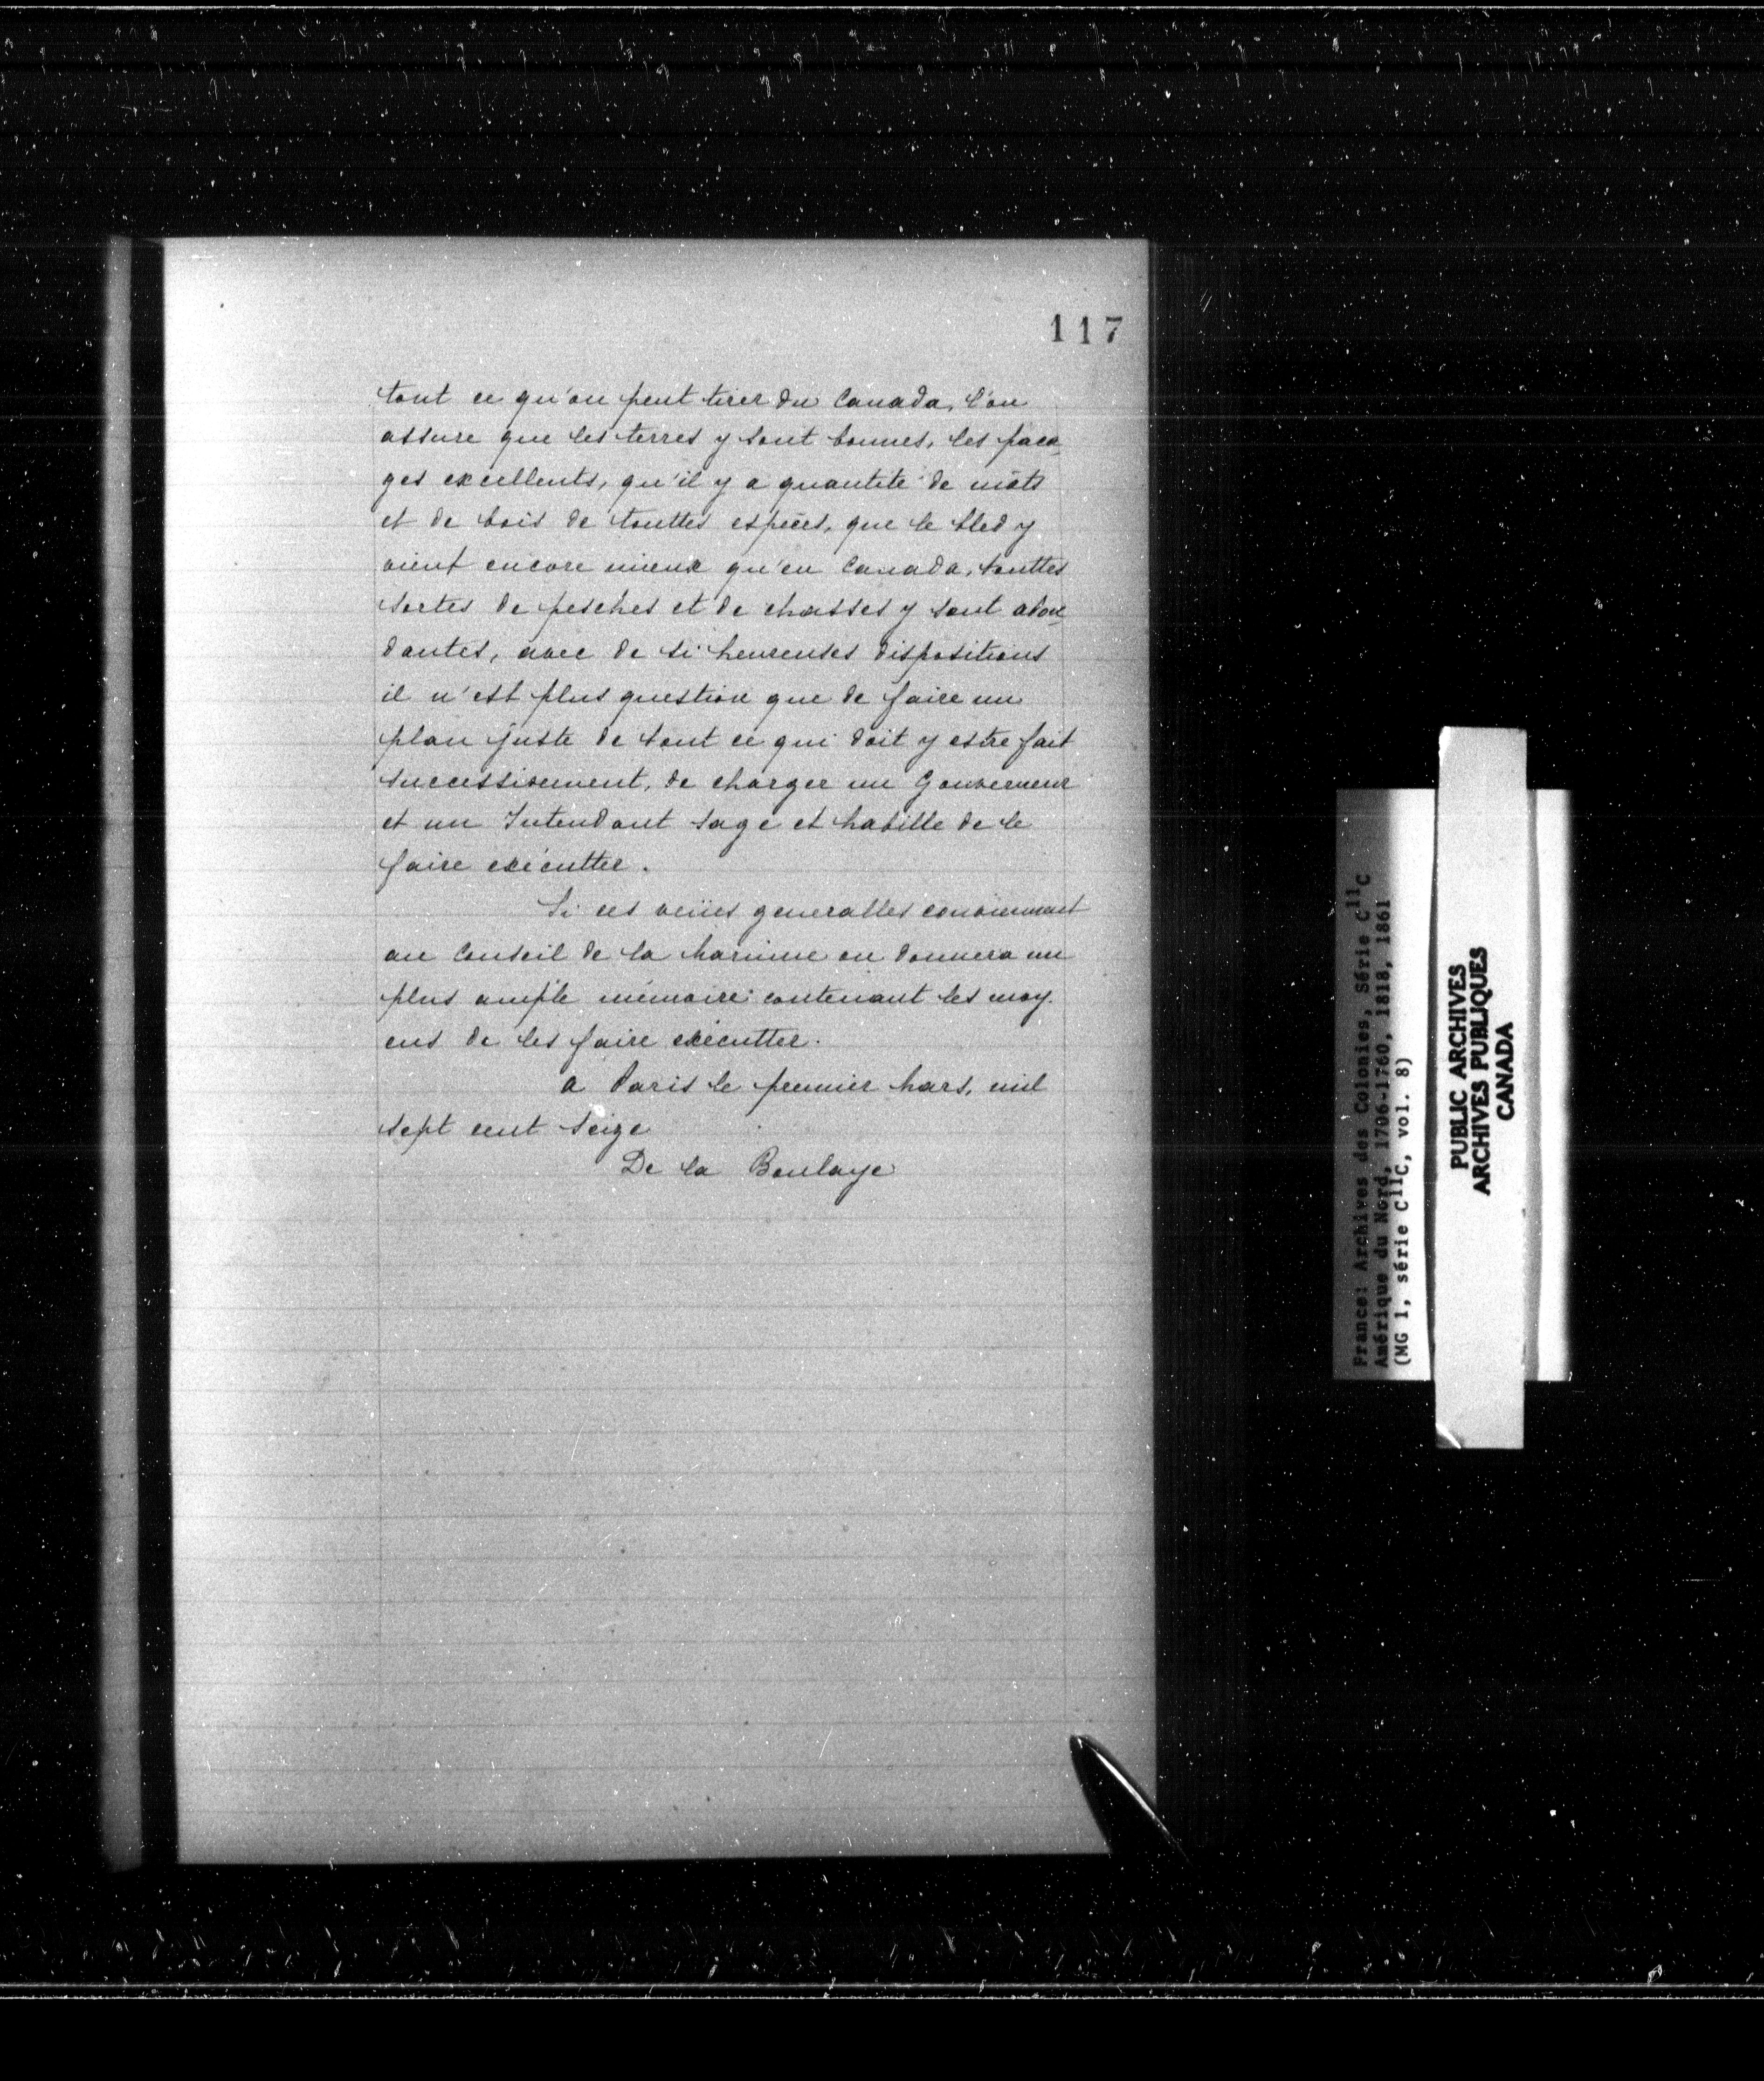 117
tout ce qu'on peut tirer du Canada, l'on
assure que les terres y sont bonnes, les paca
ges excellents, qu'il y a quantité de mâts
et de bois de touttes espèces, que le bled y
vient encore mieux qu'en Canada, touttes
sortes de pesches et de chasses y sont abon
dantes, avec de si heureuses dispositions
il n'est plus question que de faire un
plan juste de tout ce qui doit y estre fait
successivement, de charger un Gouverneur
et un Intendant sage et habille de le
faire exécutter.
Si ces veües generalles conviennent
au Conseil de la Marinne on donnera un
plus ample mémoire contenant les moy.
ens de les faire exécutter.
a Paris le premier Mars, mil
sept cent seize
De la Boulaye
France: Archives des Colonies, Série C11C
Amérique du Nord, 1706-1760, 1818, 1861
(MG 1, série C11C, vol. 8)
PUBLIC ARCHIVES
ARCHIVES PUBLIQUES
CANADA